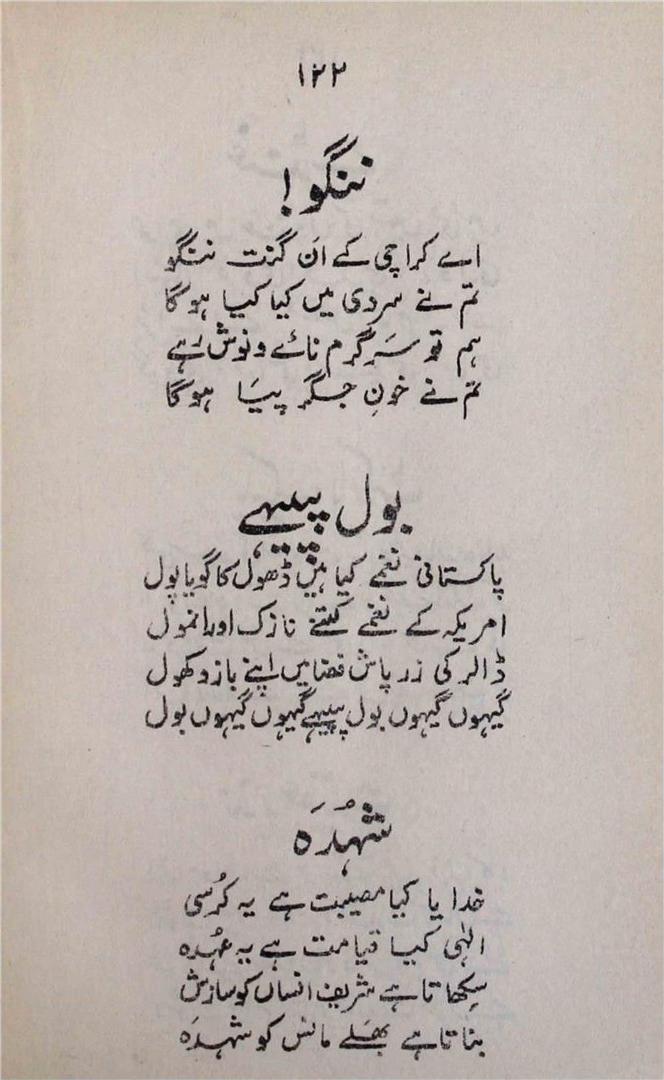 ۱۲۲
ننگو!
اے کراچی کے اَن گنت ننگو
تم نے سردی میں کیا کیا ہوگا
ہم تو سَرگرم نائے و نوش رہے
تم نے خونِ جگر پیَا ہوگا
بول پپیہے
پاکستانی نغمے کیا ہیں ڈھول کا گویا پول
امریکہ کے نغمے کتنے نازک اور انمول
ڈالر کی زر پاش فضا میں اپنے بازو کھول
گیہوں گیہوں بول پپیہے گیہوں گیہوں بول
شُہدَہ
خدایا کیا مصیبت ہے یہ کُرسی
الہٰی کیا قیامت ہے یہ عہُدہ
سِکھاتا ہے شریف انساں کو سازش
بناتا ہے بھَلے مانس کو شہدَہ